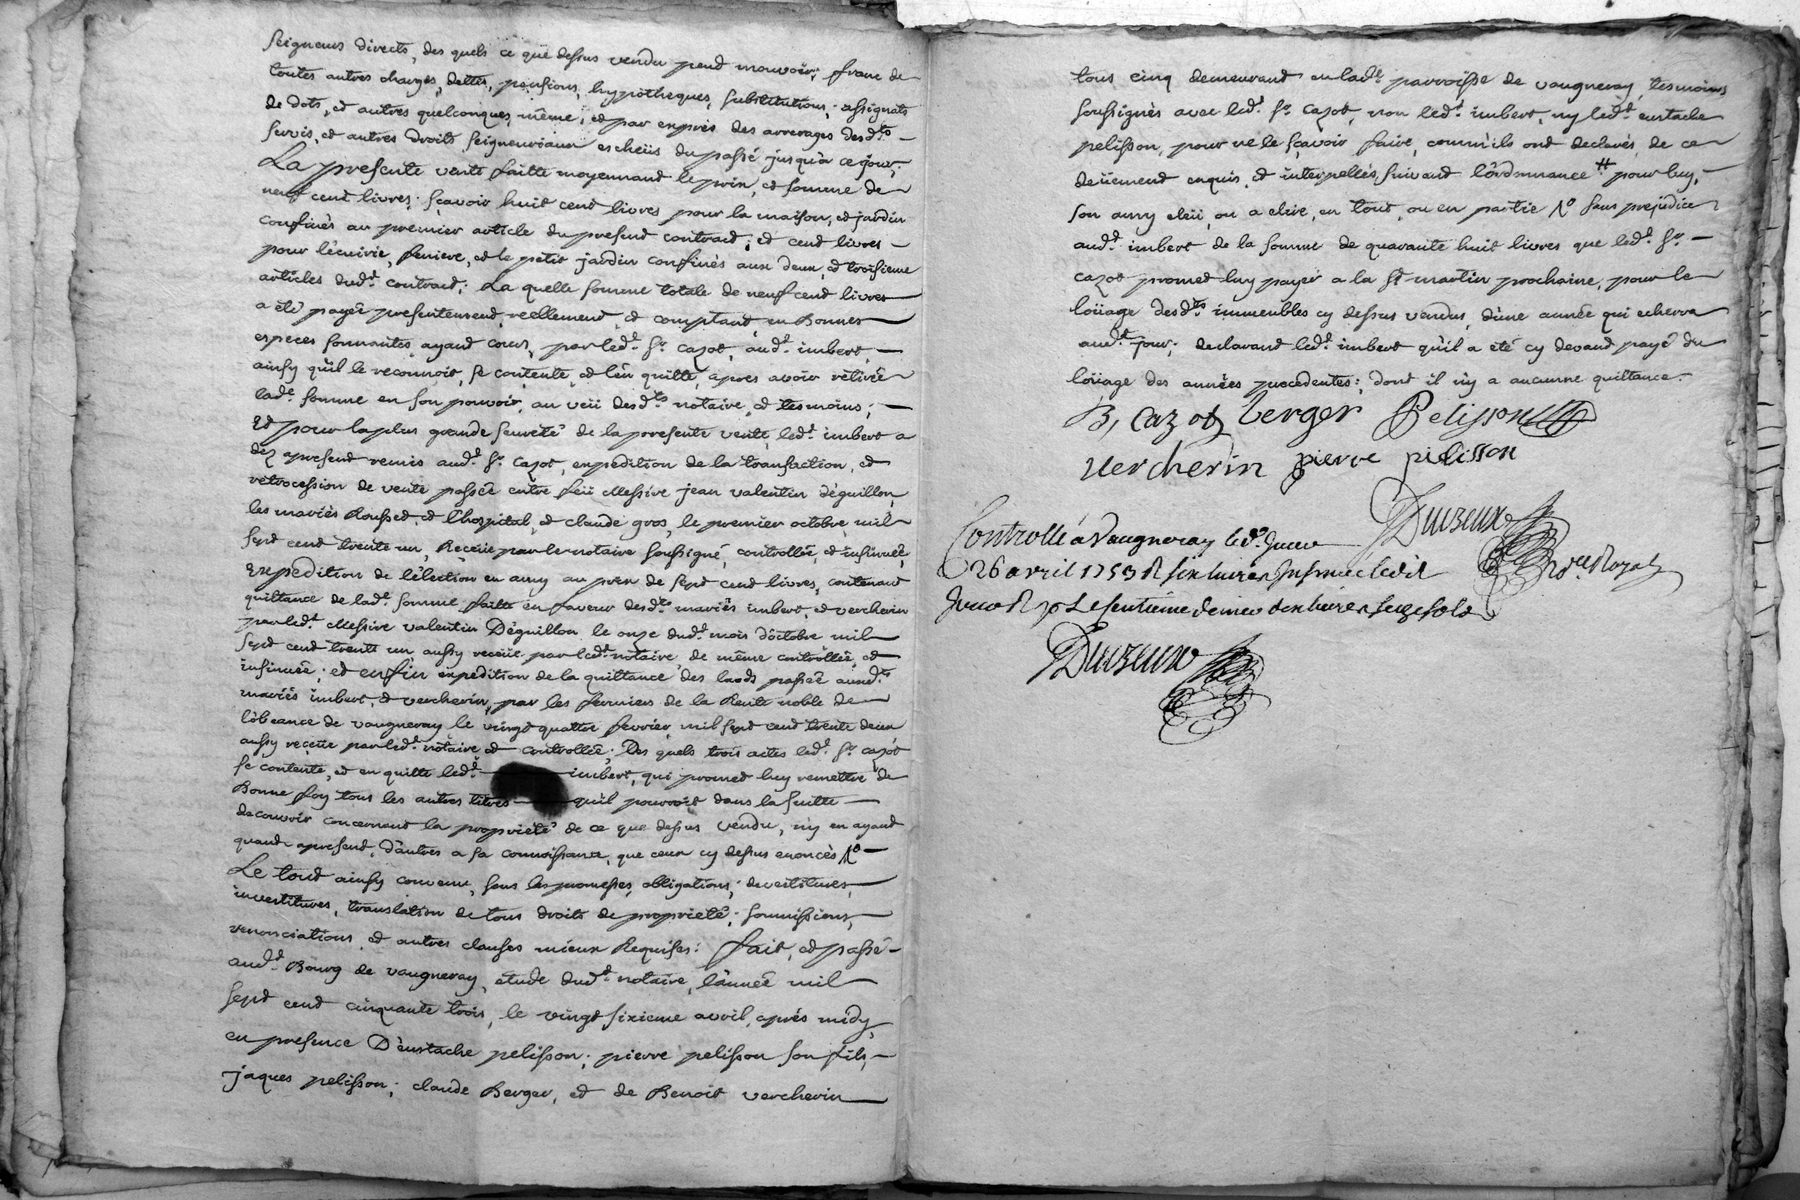 seigneurs directs, des quels ce que dessus vendu peut mouvoir; franc de
toutes autres charges, dettes, pensions, hypotheques, substitutions; assignats
de dots, et autres quelconques, même, et par exprès des arrerages desd.ts
servis, et autres droits seigneuriaux escheüs du passé jusqu'a ce jour;
La presente vente faitte moyennand le prix, et somme de
neuf cent livres; sçavoir huit cent livres pour la maison, et jardin
confinés au premier article du presend contract; et cend livres
pour l'écuirie, feniere, et le petit jardin confinés aux deux, et troisieme
articles dud.t contract; La quelle somme totale de neuf cend livres
a été payée presentement, réellement, et comptand, en Bonnes
especes sonnantes, ayand cours, par led.t Sr. cazot, aud.t imbert,
ainsy qu'il le reconnoit, se contente, et l'en quitte, apres avoir retirée
lad.e somme en son pouvoir, au veü desd.ts notaire, et tesmoins;
Et pour la plus grande seureté de la presente vente, led.t imbert a
dez apresend remis aud.t Sr. cazot, expedition de la transaction, et
retrocession de vente passée entre feü Messire jean valentin déguillon,
les mariés Rousset, et l'hospital, et claude gros, le premier octobre mil
sept cend trente un, Receüe par le notaire soussigné, controllée, et insinuée,
Expedition de l'élection en amy au prix de sept cend livres, contenant
quittance de lad.e somme, faitte en faveur desd.ts mariés imbert, et vercherin
par led.t Messire valentin Déguillon le onze dud.t mois d'octobre mil
sept cend trente un aussy receüe par led.t notaire, de même controllée, et
insinuée; et enfin expedition de la quittance des laods passée auxd.ts
mariés imbert, et vercherin, par les fermiers de la Rente noble de
l'obeance de vaugneray le vingt quattre fevrier mil sept cend trente deux
aussy receüe par led.t notaire et controllée; Des quels trois actes led.t Sr. cazot
se contente, et en quitte led.t imbert, qui promet luy remettre de
Bonne foy tous les autres titres qu'il pourroit dans la suitte
decouvrir concernant la propriété de ce que dessus vendu, n'y en ayand
quand apresend, d'autres a sa connoissance, que ceux cy dessus enoncés No
Le tout ainsy convenu, sous les promesses, obligations; devestitures,
investitures, translation de tous droits de propriété; soumissions,
renonciations, et autres clauses mieux Requises: fait, et passé
aud.t Bourg de vaugneray, étude dud.t notaire, l'année mil
sept cend cinquante trois, le vingt sixieme avril, après midy,
en presence D'eustache pelisson; pierre pelisson son fils,
jaques pelisson; claude Berger, et de Benoit vercherin
tous cinq demeurand en lad.e parroisse de vaugneray, tesmoins
soussignés avec led.t Sr. cazot, non led.t imbert, ny led.t eustache
pelisson, pour ne le sçavoir faire, comm'ils ont declarés, de ce
deüement enquis, et interpellés, suivand l'ordonnance # pour luy,
son amy eleü, ou a elire, en tout, ou en partie No sans prejudice
aud.t imbert de la somme de quarante huit livres que led.t Sr.
cazot promed luy payer a la St. martin prochaine, pour le
loüage desd.ts immeubles cy dessus vendus, d'une année qui echerra
aud.t jour; declarand led.t imbert qu'il a été cy devand payé du
loüage des années precedentes; dont il n'y a aucunne quittance.
B, Cazot Berger Pelisson
Vercherin pierre pelisson
Controllé a Vaugneray led.t jour
26 avril 1753 R six livres Insinué led.t
jour R